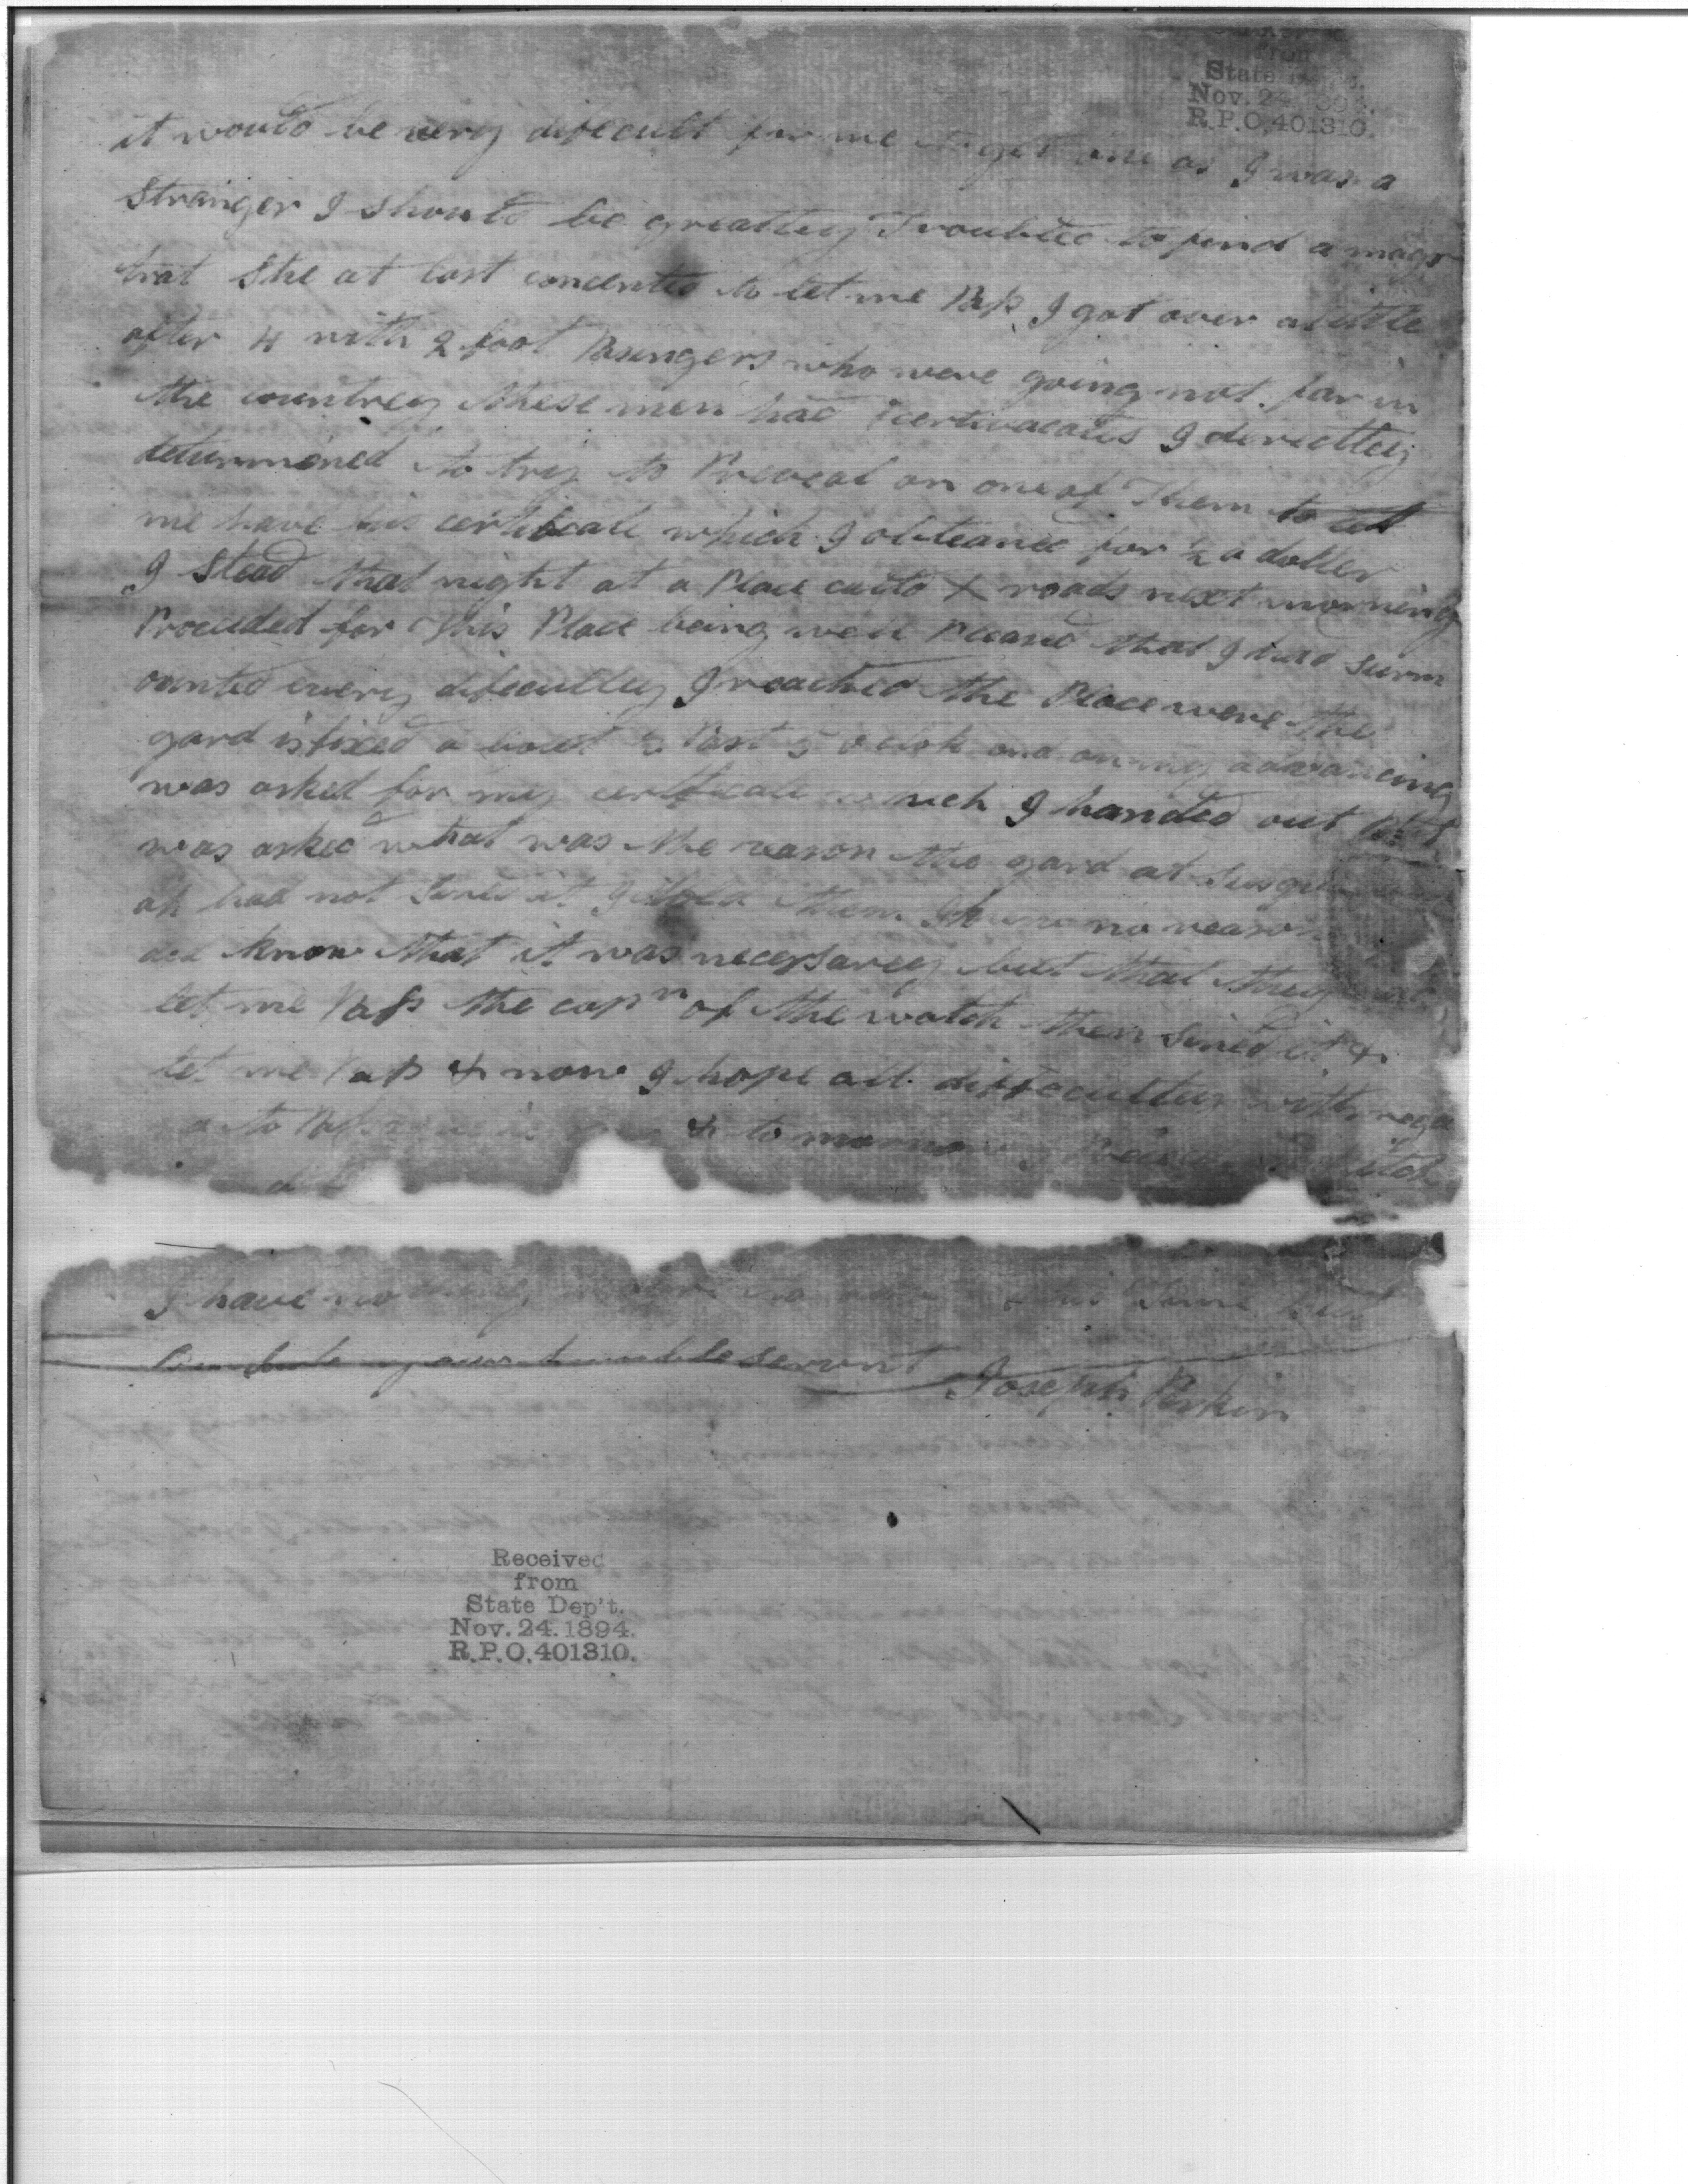 from
State
Nov. 24
R.P.O. 401310.
it would be very difecult for me to get one as I was a
Stranger I should be greatley Troubled to find a magis
trat She at last concented to let me Pass I got over a little
after 4 with 2 foot Pasingers who were going not far in
the countrey these men had certivacates I derectley
determined to try to Preveal on one of Them to let
me have his certificate which I obteaned for ½ a doller
I Stead that night at a Place culd X roads next morning
Proceded for This Place being well Pleased that I had surm
ounted every difecultey I reached the Place were the
gard is fixed a bout ½ Past 5 o clok and on my advancing
was asked for my certificate which I handed out but
was asked what was the reason the gard at
ah had not Sined it I told them I knew no reason
did know that it was necessarey but that they
let me Pass the capn of the watch then Sined it &
let me Pass & now I hope all diffecultey with rega
to & to morrow
I have nothing time but
your humble servnt Joseph Perkin
Received
from
State Dep't.
Nov. 24. 1894.
R.P.O. 401310.